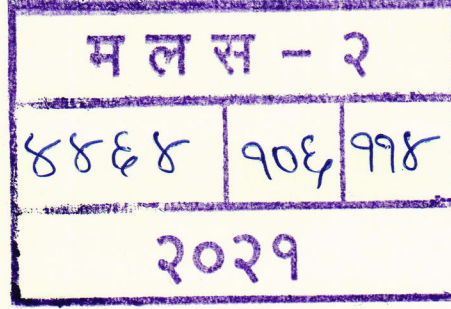 म ल स - २
४४६४ १०६ ११४
२०२१